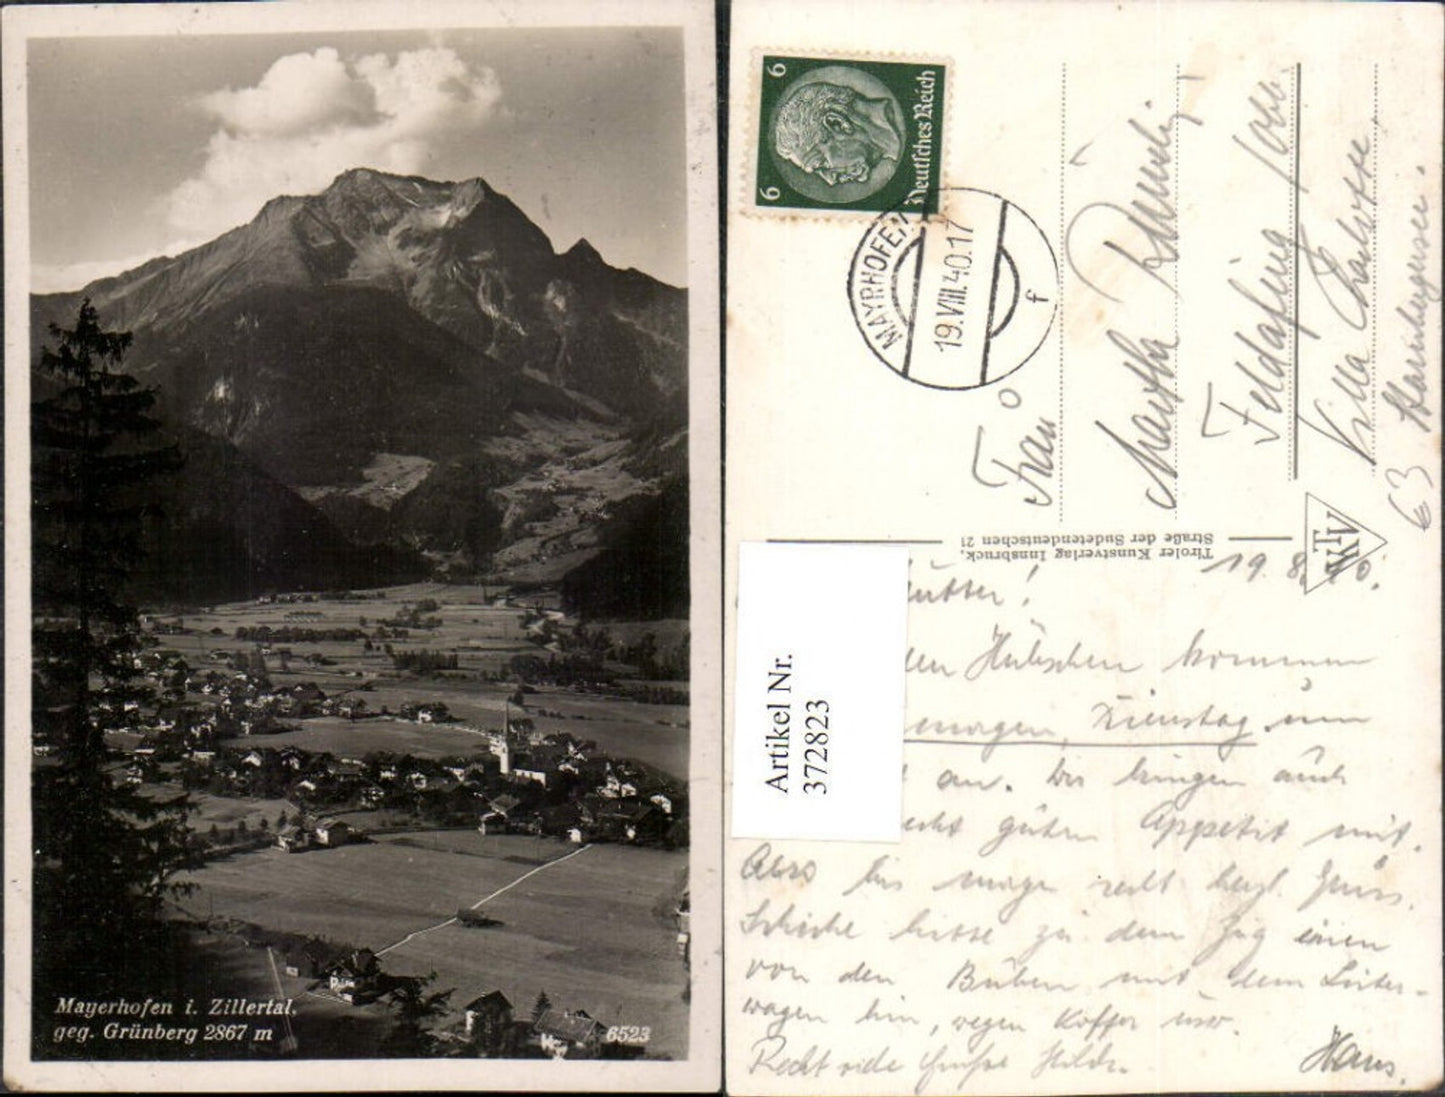 Mayerhofen i. Zillertal.
geg. Grünberg 2867 m
6523
6
6
Deutsches Reich
MAYRHOFEN
19.VIII.40.17
f
Frau
Martha
Feldafing
Villa Charlotte
Starnbergersee.
Tiroler Kunstverlag Innsbruck,
Straße der Sudetendeutschen 21
Artikel Nr.
372823
19. 8. 40.
den Hübschen kommen
morgen, Dienstag um
an. Wir bringen auch
guten Appetit mit.
Also bis morgen recht herzl. Grüss.
Schicke bitte zu dem Zug einen
von den Buben mit dem Leiter-
wagen hin, wegen Koffer usw.
Recht viele Grüsse
Hans.